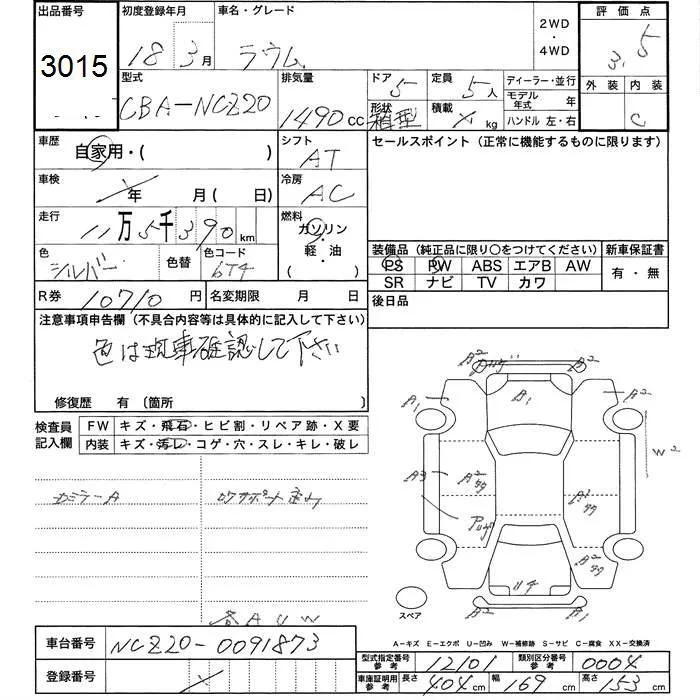 出品番号 初度登録年月 車名・グレード 2WD ・ 4WD 評価点
3015 18年 3月 ラウム 3.5
型式 排気量 ドア 5 定員 5人 ディーラー・並行 外装 内装
CBA-NCZ20 1490cc 形状 箱型 積載 kg モデル年式 年 C
ハンドル 左・右
車歴 自家用・( ) シフト AT セールスポイント (正常に機能するものに限ります)
車検 年 月(日) 冷房 AC
走行 11万5千390km 燃料 ガソリン・軽・油 ( )
色 シルバー 色替 色コード 6T4
装備品 (純正品に限り○をつけてください) 新車保証書
PS PW ABS エアB AW 有・無
SR ナビ TV カワ
R券 10710円 名変期限 月 日 後日品
注意事項申告欄 (不具合内容等は具体的に記入して下さい)
色は現車確認して下さい
修復歴 有 (箇所
検査員記入欄 FW キズ・飛石・ヒビ割・リペア跡・X要
内装 キズ・汚レ・コゲ・穴・スレ・キレ・破レ
A2 A2
A1 B1 A2
W2
A3
U4
A1
スペア
各AUW
A-キズ E-エクボ U-凹み W-補修跡 S-サビ C-腐食 XX-交換済
車台番号 NCZ20-0091873
型式指定番号 参考 12101 類別区分番号 参考 0004
登録番号
車庫証明用 参考 長さ 404cm 幅 169cm 高さ 153cm